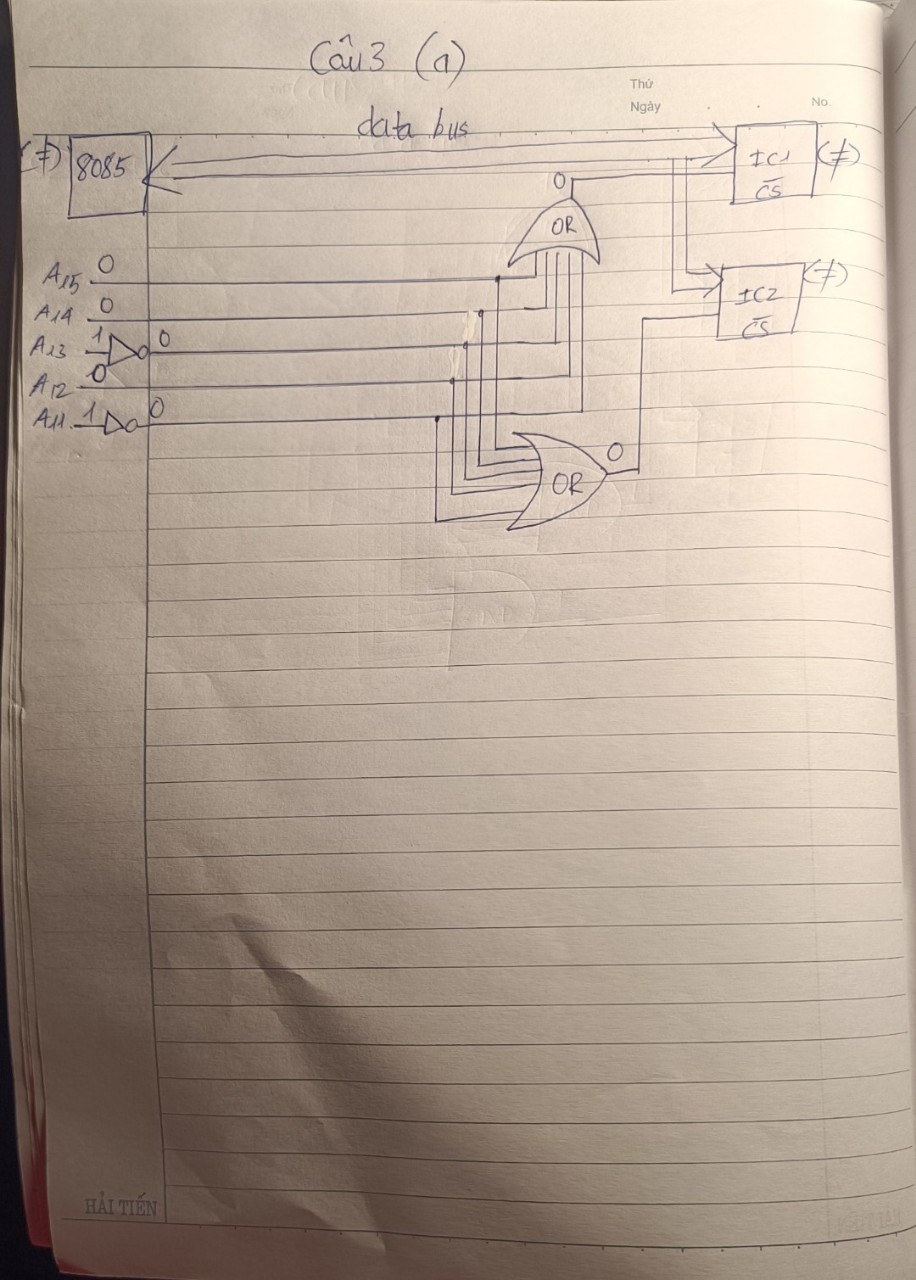 Câu 3 (a)
Thứ
Ngày No.
data bus
(≠) 8085 IC1 (≠)
CS
0
OR
A15 0
IC2 (≠)
CS
A14 0
A13 1 0
A12 0
A11 1 0
0
OR
HẢI TIẾN